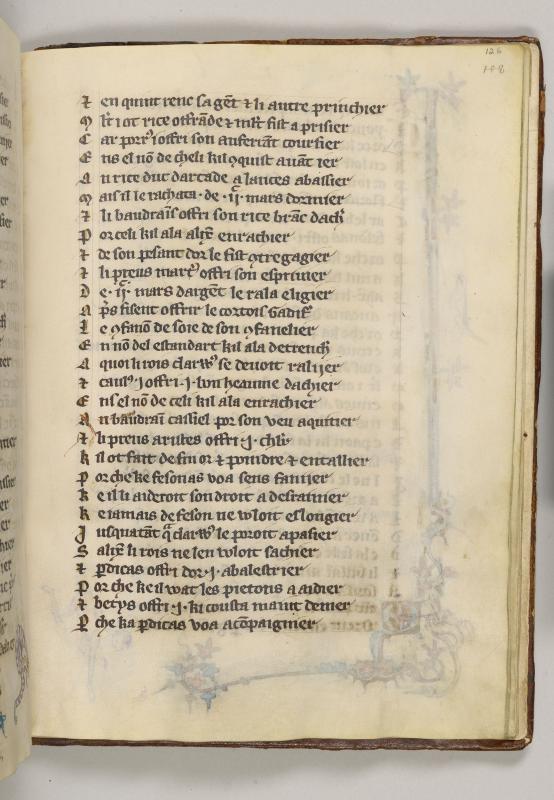 126
108
⁊ en quint renc sa gẽt ⁊ li autre princhier
M lt i ot rice offrãde ⁊ mlt fist a prisier
C ar porr⁹ i offri son auferãt coursier
E ns el nõ de cheli kil ꝯquist auãt ier
A u rice duc darcade a lances abaissier
M ais il le rachata · de · ij · mars dormier
⁊ li baudrais offri son rice brãc dach̛
P or celi kil ala alix̃ enrachier
⁊ de son pesant dor le fist ꝯtregagier
⁊ li preus marc⁹ offri son espriuier
D e · ij · mars dargẽt le rala eligier
A p̃s fisent offrir le cortois Gadif̛
L e ꝯfanõ de soie de son ꝯfanelier
E n nõ del estandart kil ala detrench̛
A quoi li rois clar⁹ se deuoit ralijer
⁊ caul⁹ · i offri · i · bon heaume dachier
E ns el nõ de celi kil ala enrachier
A u baudrai cassiel por son veu aquitier
⁊ li preus aristes offri · j · chl̛r
K il ot fait de fin or ⁊ poindre ⁊ entaillier
P or che ke fesonas voa sens fannier
K e il li aideroit son droit a desrainier
K e iamais de feson ne woloit eslongier
J usquatãt q̃ clar⁹ le poroit apaisier
S alix̃ li rois ne len woloit sachier
⁊ ꝑdicas offri dor · j · abalestrier
P or che ke il wat les pietons a aidier
⁊ betys offri · j · ki cousta maint denier
P che ka ꝑdicas voa acõpaignier